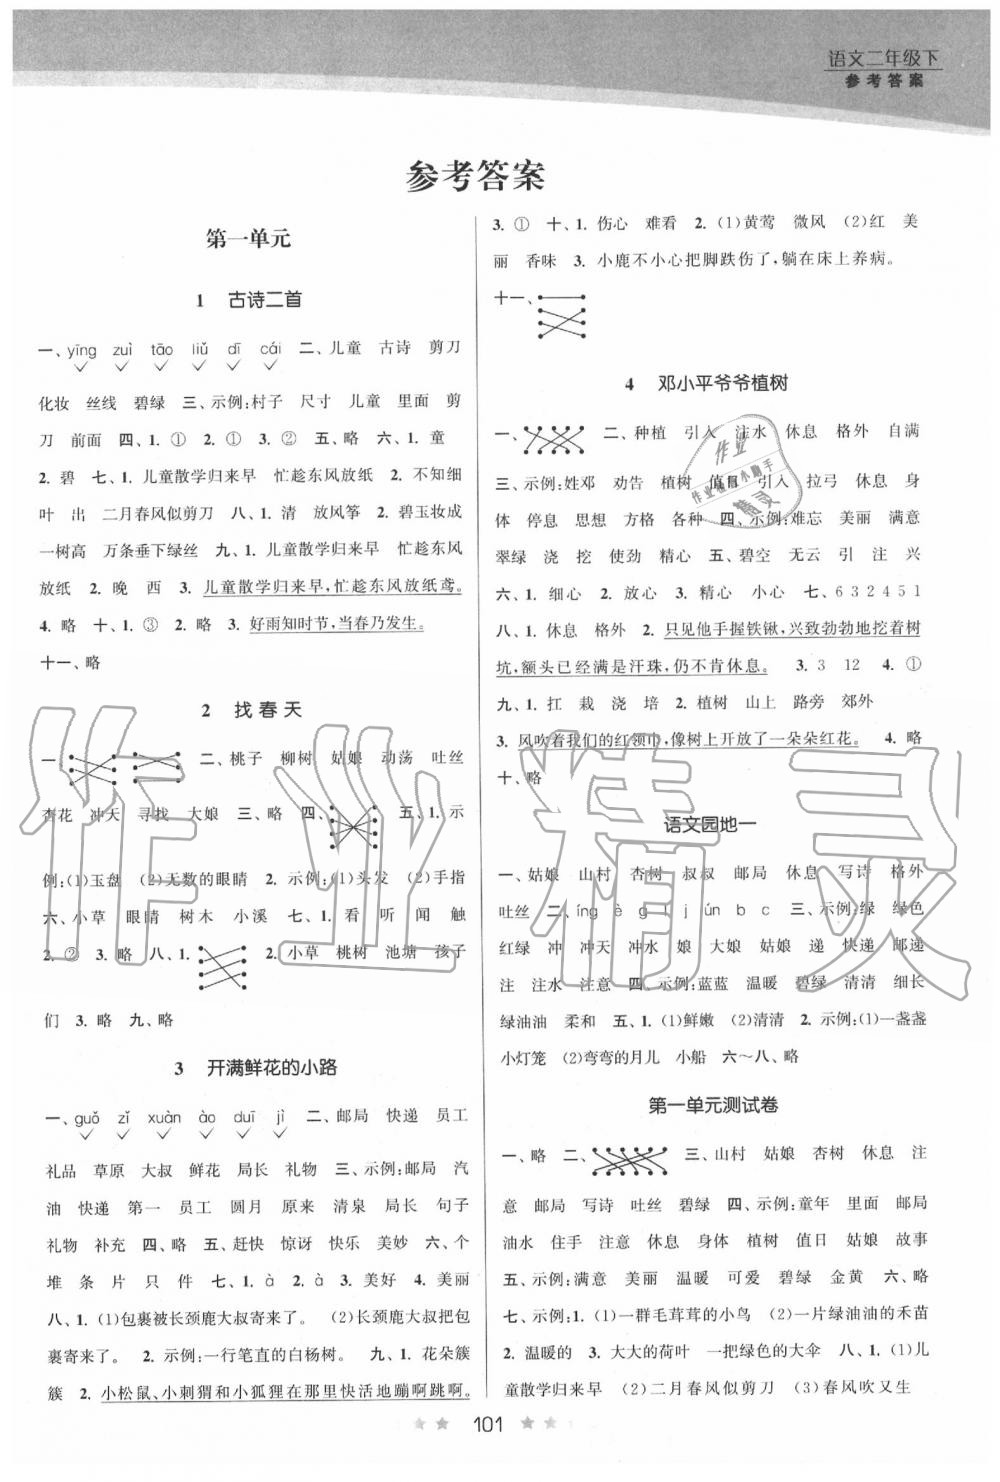 语文二年级下
参考答案
参考答案
第一单元
1 古诗二首
一、yīng zuì tāo liǔ dī cái 二、儿童 古诗 剪刀
化妆 丝线 碧绿 三、示例:村子 尺寸 儿童 里面 剪
刀 前面 四、1. ① 2. ① 3. ② 五、略 六、1. 童
2. 碧 七、1. 儿童散学归来早 忙趁东风放纸 2. 不知细
叶 出 二月春风似剪刀 八、1. 清 放风筝 2. 碧玉妆成
一树高 万条垂下绿丝 九、1. 儿童散学归来早 忙趁东风
放纸 2. 晚 西 3. 儿童散学归来早,忙趁东风放纸鸢。
4. 略 十、1. ③ 2. 略 3. 好雨知时节,当春乃发生。
十一、略
2 找春天
一、 二、桃子 柳树 姑娘 动荡 吐丝
杏花 冲天 寻找 大娘 三、略 四、 五、1. 示
例:(1)玉盘 (2)无数的眼睛 2. 示例:(1)头发 (2)手指
六、小草 眼睛 树木 小溪 七、1. 看 听 闻 触
2. ② 3. 略 八、1. 2. 小草 桃树 池塘 孩子
们 3. 略 九、略
3 开满鲜花的小路
一、guǒ zǐ xuàn ào duī jì 二、邮局 快递 员工
礼品 草原 大叔 鲜花 局长 礼物 三、示例:邮局 汽
油 快递 第一 员工 圆月 原来 清泉 局长 句子
礼物 补充 四、略 五、赶快 惊讶 快乐 美妙 六、个
堆 条 片 只 件 七、1. à 2. à 3. 美好 4. 美丽
八、1. (1)包裹被长颈鹿大叔寄来了。 (2)长颈鹿大叔把包
裹寄来了。 2. 示例:一行笔直的白杨树。 九、1. 花朵簇
簇 2. 小松鼠、小刺猬和小狐狸在那里快活地蹦啊跳啊。
3. ① 十、1. 伤心 难看 2. (1)黄莺 微风 (2)红 美
丽 香味 3. 小鹿不小心把脚跌伤了,躺在床上养病。
十一、
4 邓小平爷爷植树
一、 二、种植 引入 注水 休息 格外 自满
三、示例:姓邓 劝告 植树 值日 引入 拉弓 休息 身
体 停息 思想 方格 各种 四、示例:难忘 美丽 满意
翠绿 浇 挖 使劲 精心 五、碧空 无云 引 注 兴
六、1. 细心 2. 放心 3. 精心 小心 七、6 3 2 4 5 1
八、1. 休息 格外 2. 只见他手握铁锹,兴致勃勃地挖着树
坑,额头已经满是汗珠,仍不肯休息。 3. 3 12 4. ①
九、1. 扛 栽 浇 培 2. 植树 山上 路旁 郊外
3. 风吹着我们的红领巾,像树上开放了一朵朵红花。 4. 略
十、略
语文园地一
一、姑娘 山村 杏树 叔叔 邮局 休息 写诗 格外
吐丝 二、íng è g l j ún b c 三、示例:绿 绿色
红绿 冲 冲天 冲水 娘 大娘 姑娘 递 快递 邮递
注 注水 注意 四、示例:蓝蓝 温暖 碧绿 清清 细长
绿油油 柔和 五、1. (1)鲜嫩 (2)清清 2. 示例:(1)一盏盏
小灯笼 (2)弯弯的月儿 小船 六～八、略
第一单元测试卷
一、略 二、 三、山村 姑娘 杏树 休息 注
意 邮局 写诗 吐丝 碧绿 四、示例:童年 里面 邮局
油水 住手 注意 休息 身体 植树 值日 如此 故事
五、示例:满意 美丽 温暖 可爱 碧绿 金黄 六、略
七、示例:1. (1)一群毛茸茸的小鸟 (2)一片绿油油的禾苗
2. 温暖的 3. 大大的荷叶 一把绿色的大伞 八、1. (1)儿
童散学归来早 (2)二月春风似剪刀 (3)春风吹又生
101
作业精灵